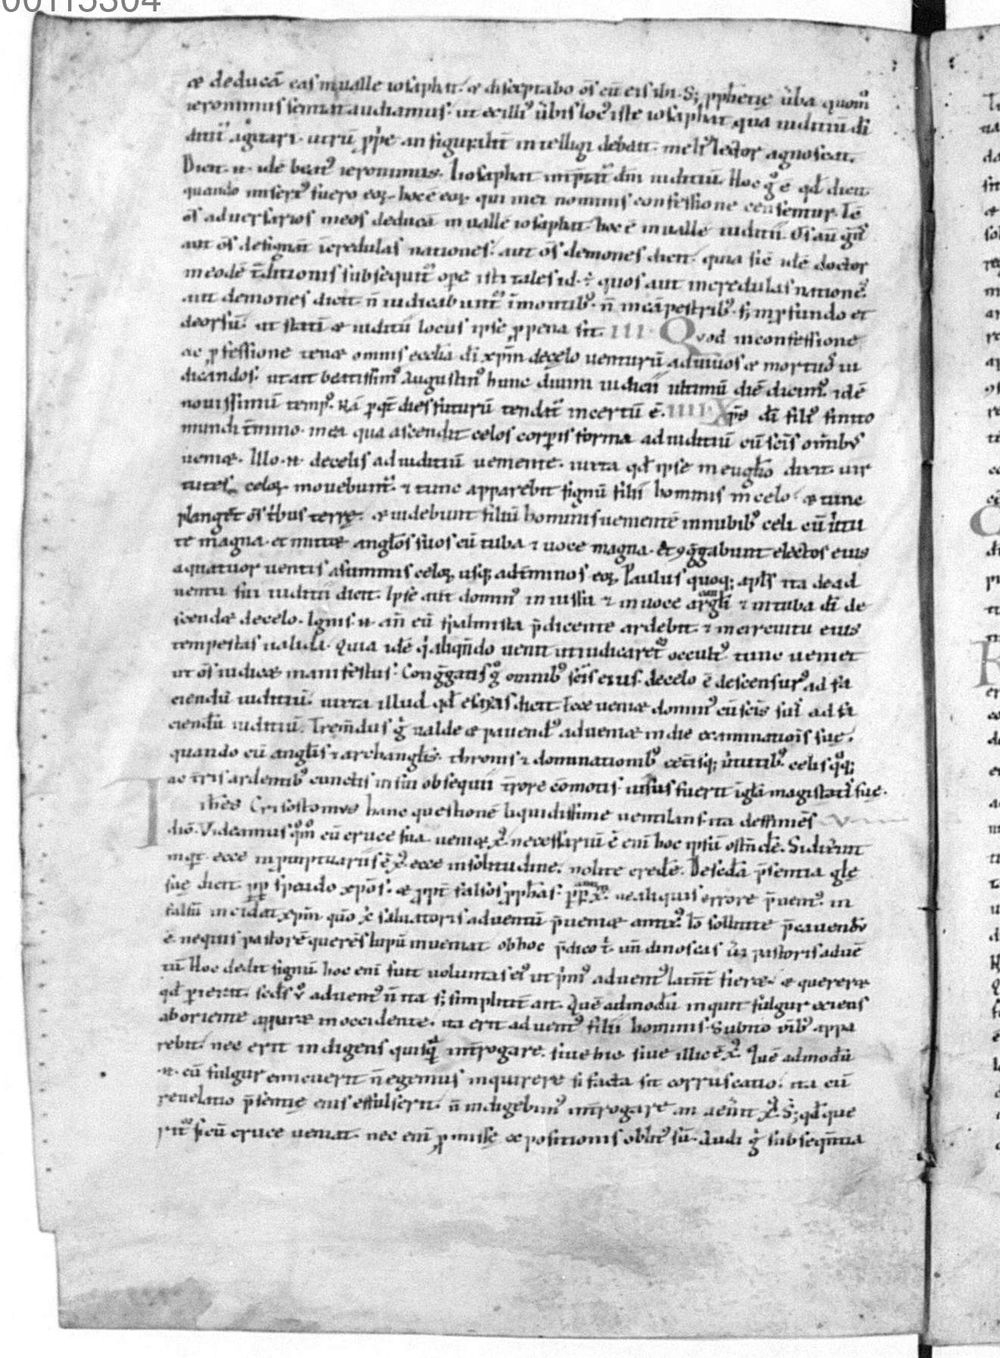 00115304
& deducā eas in ualle iosaphat. & disceptabo ōs cū eis ibi. S; pphetię ūba quom̄
ieronimus sentiat audiamus. ut ex illi' ūbis loc' iste iosaphat qua iuditiū dī
agitari. utrū ppe an figuralit̄ intelligi debeat. meli' lector agnoscat.
Dicit. n. idē beat' ieronimus. Iosaphat int̄p̄tat' dn̄i iuditiū. Hoc g° ē qd̄ dicit
quando misert' fuero eoꝝ. hoc ē eoꝝ qui mei nominis confessione censentur. Tē
ōs aduersarios meos deducā in uallē iosaphat. hoc ē in uallē iuditii. Os aū gn̄s
aut ōs designat īcredulas nationes. aut ōs demones dicit. quia sic idē doctor
in eodē subsequit' ope isti tales id. ē. quos aut incredulas natione'.
aut demones dicit. n̄ iudicabunt' ī montib'. n̄ in cāpestrib'. s; in pfundo et
deorsū. ut statī & iuditii locus ipse p pena sit. III. Quod in confessione
ac pfessione tenæ omnis ecclīa dī xpm̄ de celo uenturū ad uiuos & mortuos iu
dicandos. ut ait beatissim' Augustin' hunc diuini iudicii ultimū diē dicim'. idē
nouissimū temp'. Nā p qt̄ dies futurū tendat' incertū ē. IIII. Xpc dī fili' finito
mundi t̄mino. in ea qua ascendit celos corpis forma ad iuditiū cū sc̄is om̄ibus
ueniæ. Illo. n. de celis ad iuditiū ueniente. iuxta qd̄ ipse in euglio dicit. uir
tutes celoꝝ mouebunt'. & tunc apparebit signū filii hominis in celo. & tunc
plangēt ōs t̄bus terrę. & uidebunt filiū hominis uenientē in nubib' celi cū uirtu
te magna. et mittæ anglōs suos cū tuba & uoce magna. et 9ggabunt electos eius
a quatuor uentis a summis celoꝝ usq; ad t̄minos eoꝝ. Paulus quoq; apls ita de ad
uentu sui iuditii dicit. Ipse aut domin' in iussu & in uoce archangli & in tuba dī de
scendæ de celo. Ignis. n. an̄ eū spalmista p̄dicente ardebit. & in circuitu eius
tempestas ualida. Quia idē q aliqn̄do uenit ut iudicaret' occult' tunc ueniet
ut ōs iudicæ manifestus. Conggatis g° omnib' sc̄is eius. de celo ē descensur' ad fa
ciendū iuditiū. iuxta illud qd̄ esayas dicit. Ecce ueniæ domin' cū sc̄is suī ad fa
ciendū iuditiū. Trem̄dus g° ualde & pauend' adueniæ in die examinationīs sue.
quando cū anglīs & archanglīs. thronis & dominationib' cet̄isq; uirtutib'. celis qq;
ac t̄ris ardentib' cunctis in sui obsequii t̄rore cōmotis. uisus fuerit
Iohēs Crisostomus hanc questionē liquidissime uentilans ita deffiniēs
dic̄. Videamus quō cū cruce sua ueniæ x̄. necessariū ē enī hoc ipsū ostn̄dē. Si dixerint
inqt. ecce in pinptuariis ē x̄. ecce in solitudine. nolite credē. De secda p̄sentia glę
suę dicit. pp pseudo xpos. & ppt̄ falsos pphetas. ne aliquis errore p̄uent'. in
falsū incidat xpm̄ saluatoris aduentū p̄ueniæ sollicite p̄cauendū
ē ne quis pastorē querēs lupū inueniat. ob hoc p̄dico t'. un̄ dinoscas uī pastoris aduē
tū. Hoc dedit signū. hoc enī fuit uoluntas ei' ut pm' aduent' latn̄t fieræ. & quereræ
qd̄ pierat. secd's uero aduent' n̄ ita s; simplicit̄ ait. Quē admodū inquit fulgur exiens
ab oriente apparæ in occidente. ita erit aduent' filii hominis. Subito om̄ib' appa
rebit. nec erit indigens quisqā int̄rogare. siue hic siue illic ē x̄. Quē admodū
.n. cū fulgur emicuerit n̄ egemus inquirere si facta sit corruscatio. ita cū
reuelatio p̄sentię eius effulserit. n̄ indigebim' int̄rogare an aduenit x̄. S; qd̄ que
rit' si cū cruce ueniat. nec enī pmisse expositionis oblit' sū. Audi g° subseqn̄tia